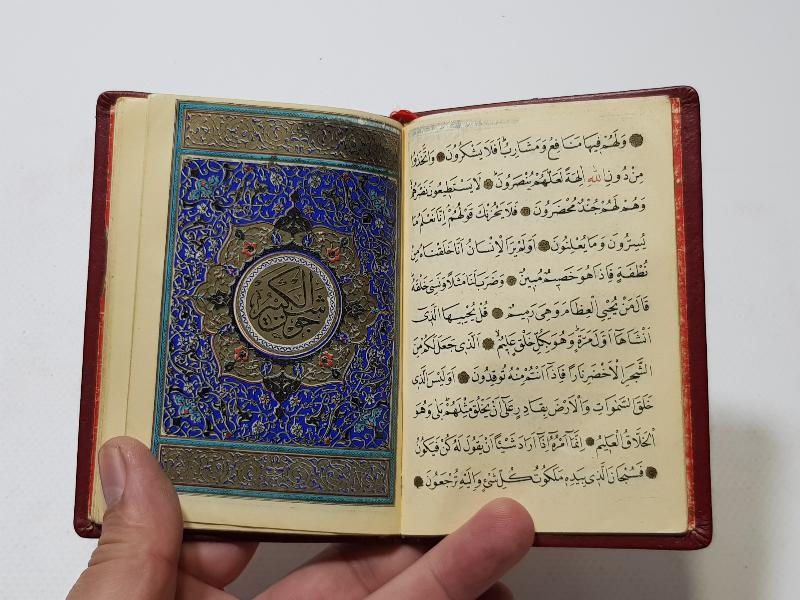 وَلَهُمْ فِيهَا مَنَافِعُ وَمَشَارِبُ اَفَلَا يَشْكُرُونَ وَاتَّخَذُوا
مِنْ دُونِ اللهِ اٰلِهَةً لَعَلَّهُمْ يُنْصَرُونَ لَا يَسْتَطِيعُونَ نَصْرَهُمْ
وَهُمْ لَهُمْ جُنْدٌ مُحْضَرُونَ فَلَا يَحْزُنْكَ قَوْلُهُمْ اِنَّا نَعْلَمُ مَا
يُسِرُّونَ وَمَا يُعْلِنُونَ اَوَلَمْ يَرَ الْاِنْسَانُ اَنَّا خَلَقْنَاهُ مِنْ
نُطْفَةٍ فَاِذَا هُوَ خَصِيمٌ مُبِينٌ وَضَرَبَ لَنَا مَثَلًا وَنَسِيَ خَلْقَهُ
قَالَ مَنْ يُحْيِي الْعِظَامَ وَهِيَ رَمِيمٌ قُلْ يُحْيِيهَا الَّذِي
اَنْشَاَهَا اَوَّلَ مَرَّةٍ وَهُوَ بِكُلِّ خَلْقٍ عَلِيمٌ اَلَّذِي جَعَلَ لَكُمْ مِنَ
الشَّجَرِ الْاَخْضَرِ نَارًا فَاِذَا اَنْتُمْ مِنْهُ تُوقِدُونَ اَوَلَيْسَ الَّذِي
خَلَقَ السَّمٰوَاتِ وَالْاَرْضَ بِقَادِرٍ عَلٰى اَنْ يَخْلُقَ مِثْلَهُمْ بَلٰى وَهُوَ
الْخَلَّاقُ الْعَلِيمُ اِنَّمَا اَمْرُهُ اِذَا اَرَادَ شَيْئًا اَنْ يَقُولَ لَهُ كُنْ فَيَكُونُ
فَسُبْحَانَ الَّذِي بِيَدِهِ مَلَكُوتُ كُلِّ شَيْءٍ وَاِلَيْهِ تُرْجَعُونَ
جوشن الكبير